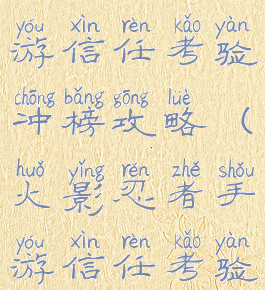 yóu xìn rèn kǎo yàn
游信任考验
chōng bǎng gōng lüè
冲榜攻略（
huǒ yǐng rěn zhě shǒu
火影忍者手
yóu xìn rèn kǎo yàn
游信任考验